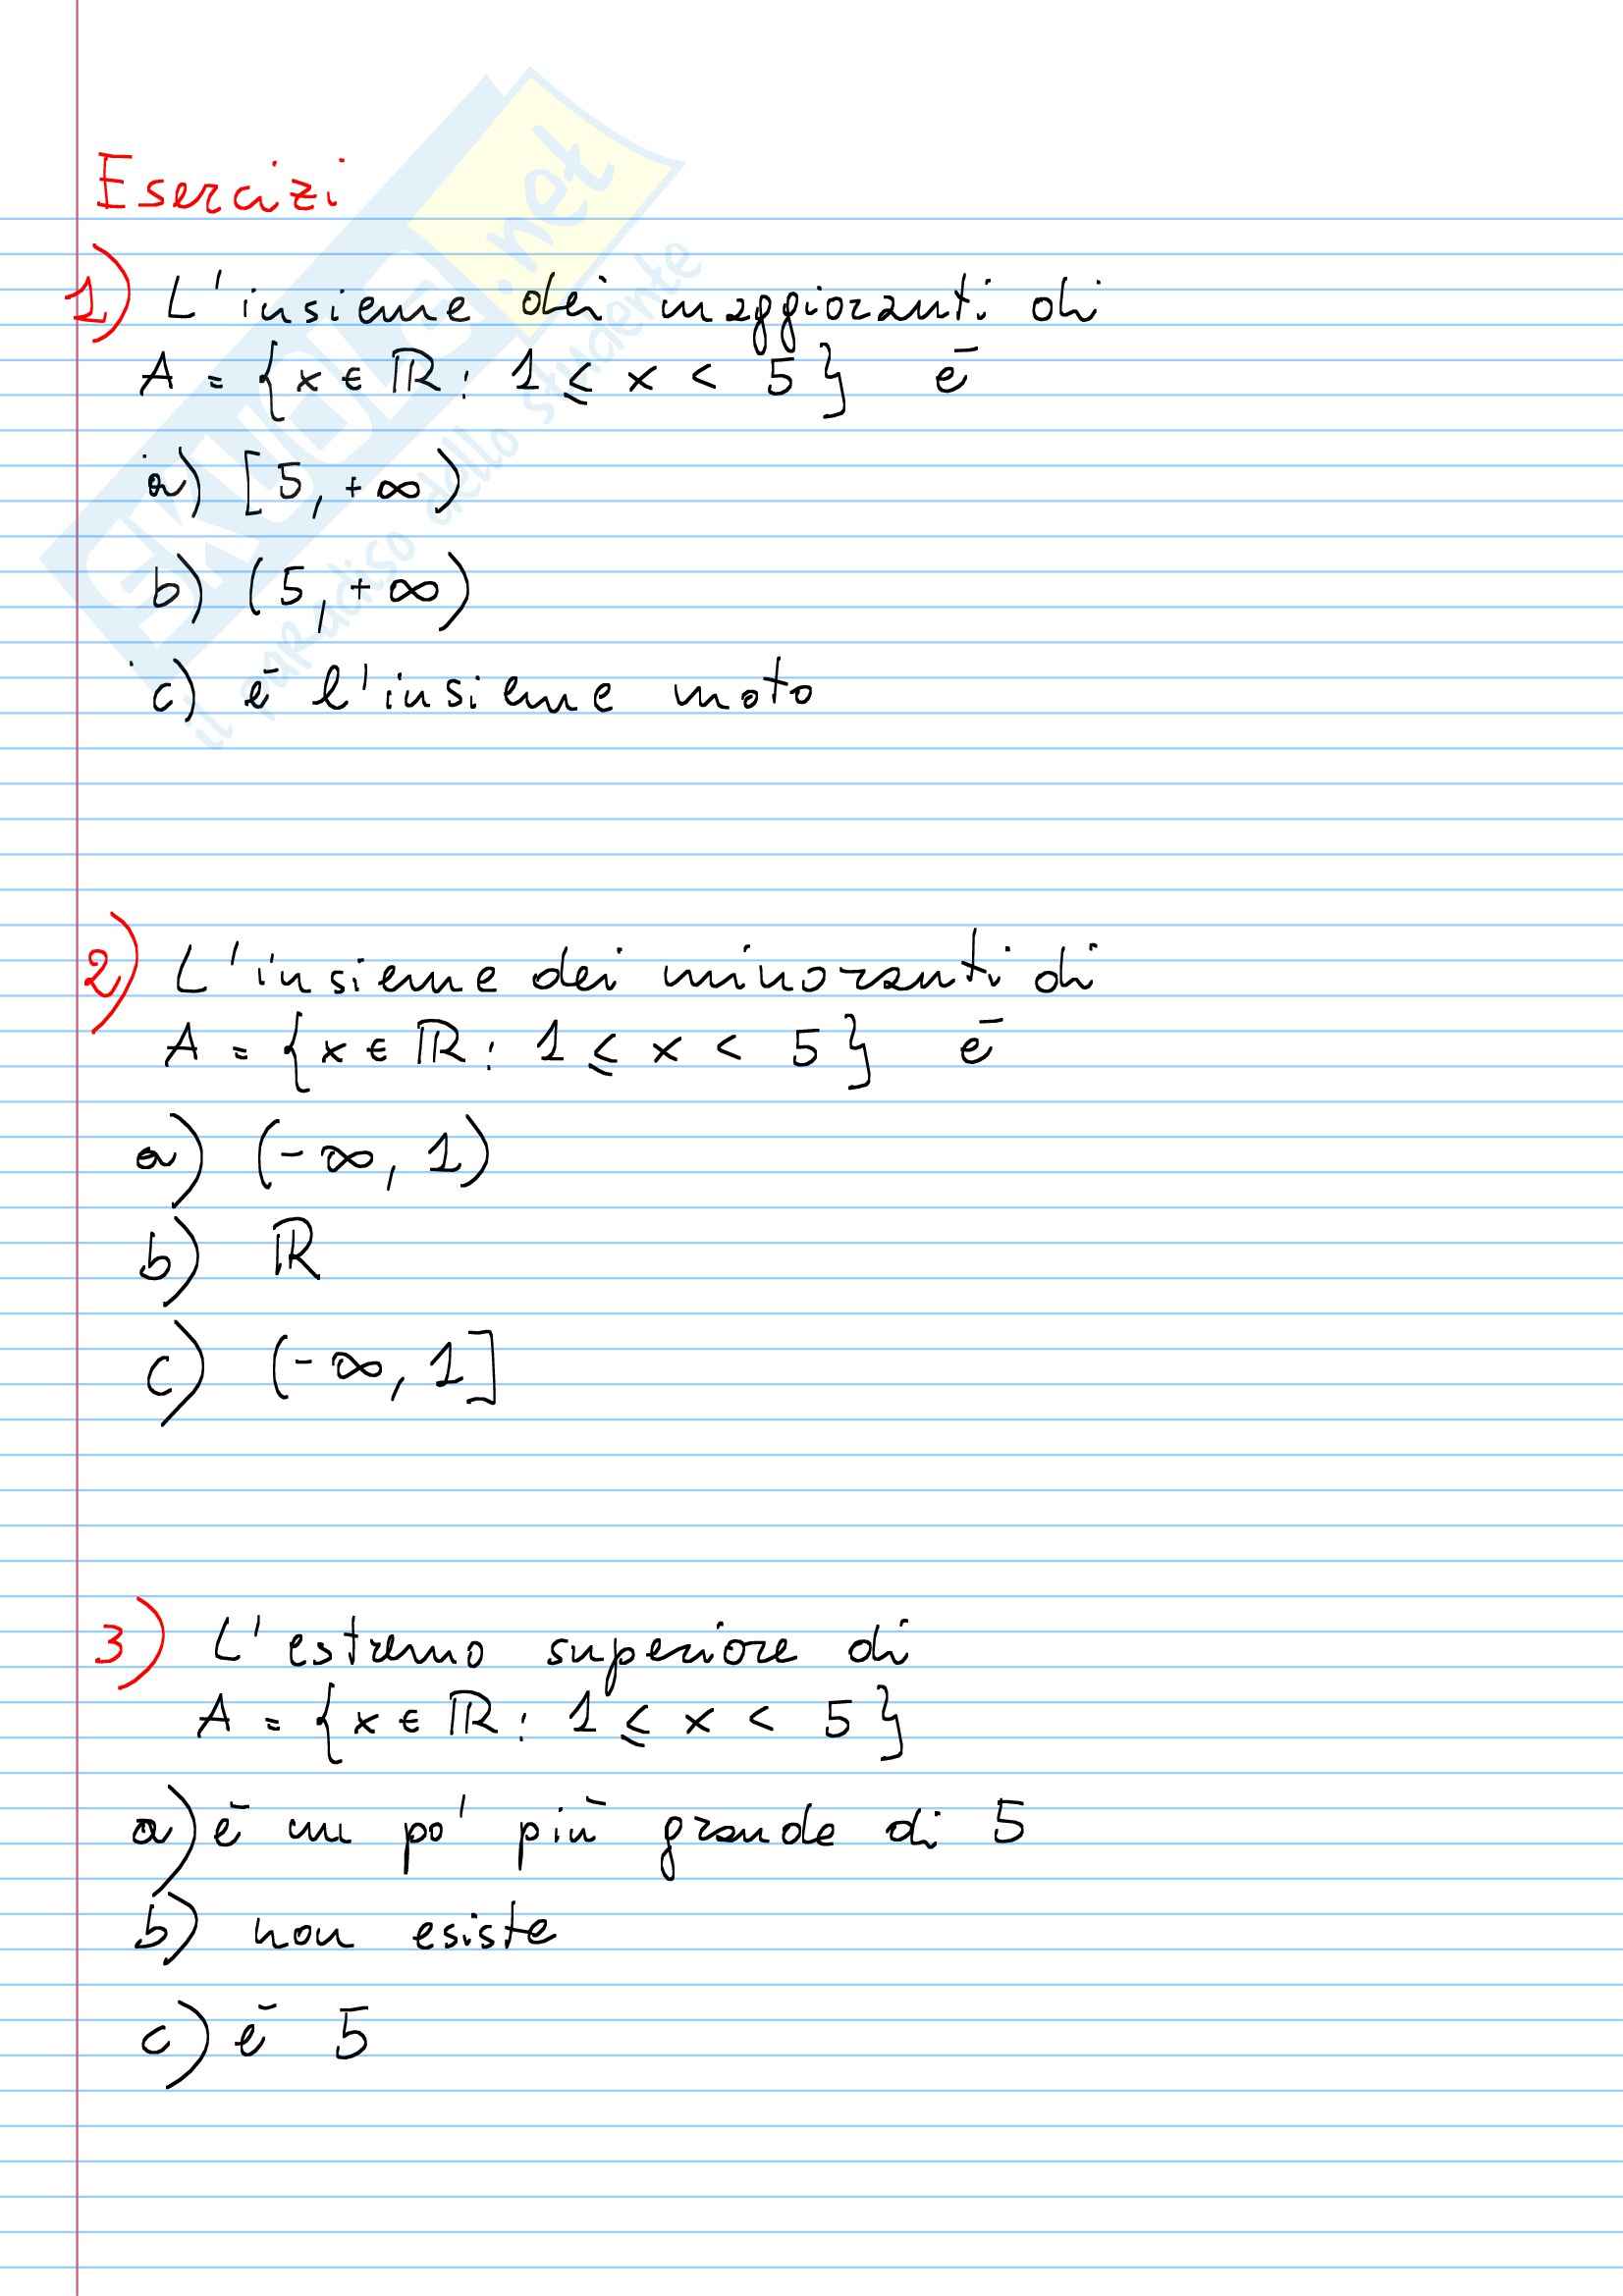 Esercizi
1) L'insieme dei maggioranti di
A = {x ∈ ℝ : 1 ≤ x < 5} è
a) [5, +∞)
b) (5, +∞)
c) è l'insieme vuoto
2) L'insieme dei minoranti di
A = {x ∈ ℝ : 1 ≤ x < 5} è
a) (-∞, 1)
b) ℝ
c) (-∞, 1]
3) L'estremo superiore di
A = {x ∈ ℝ : 1 ≤ x < 5}
a) è un po' più grande di 5
b) non esiste
c) è 5
SKUOLA.net
il paradiso dello studente